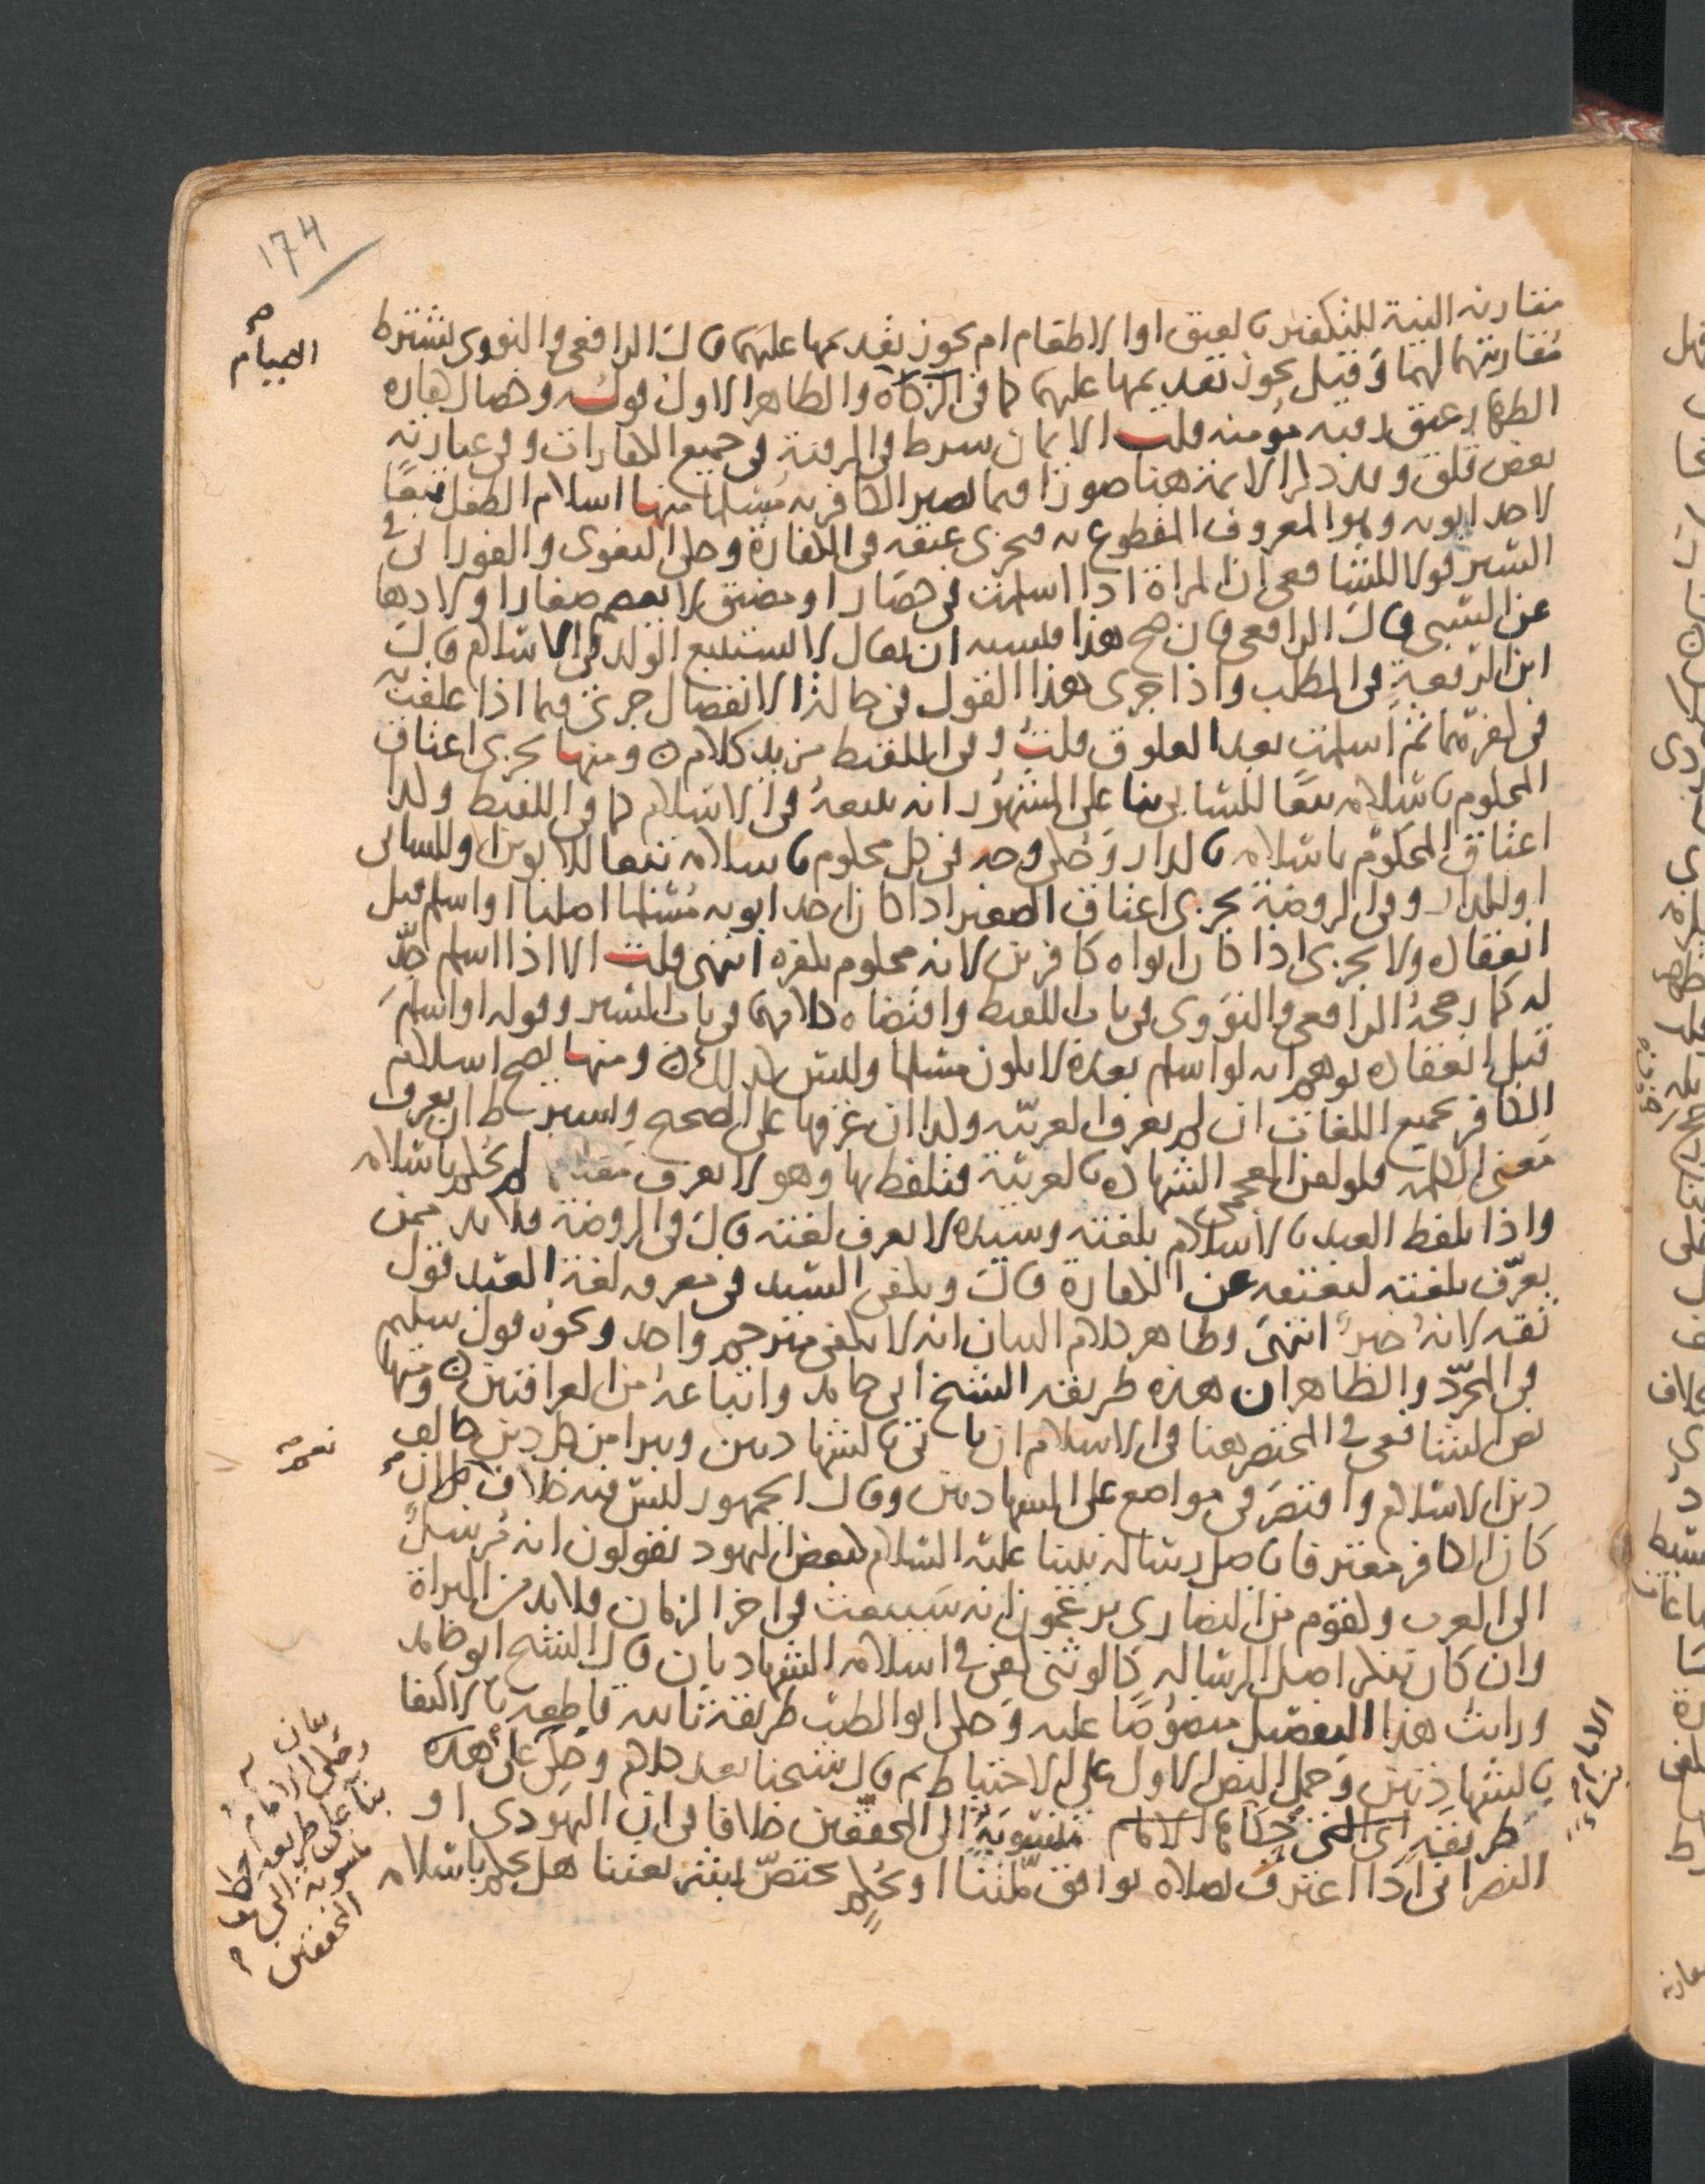 174
الصيام
مقارنة النية للتكفير بالعتق او الاطعام ام يجوز تقديمها عليهما قال الرافعي والنووي يشترط
مقارنتهما لهما وقيل يجوز تقديمها عليهما كما في الزكاة والظاهر الاول قوله وخصال كفارة
الظهار عتق رقبة مؤمنة قلت الايمان شرط في الرقبة في جميع الكفارات وفي عبارته
بعض قلق وقد ذكر الائمة هنا صورا فيما يصير الكافر به مسلما منها اسلام الطفل تبعا
لاحد ابويه وهو المعروف المقطوع به فيجزي عتقه في الكفارة وحكى البغوي والفوراني في
السير قولا للشافعي ان المراة اذا اسلمت في حصار او مضيق لا يعصم صغار اولادها
عن السبي قال الرافعي فان صح هذا فيشبه ان يقال لا يستتبع الولد في الاسلام قال
ابن الرفعة في المطلب واذا جرى هذا القول في حالة الانفصال جرى فيما اذا علقت به
في كفرهما ثم اسلمت بعد العلوق قلت وفي اللقيط مزيد كلام ومنها يجزي اعتاق
المحكوم باسلامه تبعا للسابي بنا على المشهور انه يتبعه في الاسلام كما في اللقيط وكذا
اعتاق المحكوم باسلامه بالدار وحكى وجه في كل محكوم باسلامه تبعا للابوين او للسابي
او للدار وفي الروضة يجزي اعتاق الصغير اذا كان احد ابويه مسلما اصليا او اسلم قبل
انعقاده ولا يجزي اذا كان ابواه كافرين لانه محكوم بكفره انتهى قلت الا اذا اسلم جد
له كما رجحه الرافعي والنووي في باب اللقيط واقتضاه كلامهما في باب السير وقوله او اسلم
قبل انعقاده يوهم انه لو اسلم بعده لا يكون مسلما وليس كذلك ومنها يصح اسلام
الكافر بجميع اللغات ان لم يعرف العربية وكذا ان عرفها على الصحيح ويشترط ان يعرف
معنى الكلمة فلو لقن العجمي الشهادة بالعربية فتلفظ بها وهو لا يعرف معناها لم يحكم باسلامه
واذا تلفظ العبد بالاسلام بلغته وسيده لا يعرف لغته قال في الروضة فلا بد ممن
يعرف بلغته ليعتقه عن الكفارة قال ويكفي السيد في معرفه لغة العبد قول
ثقه لانه خبر انتهى وظاهر كلام البيان انه لا يكفي مترجم واحد ونحوه قول سليم
في المجرد والظاهر ان هذه طريقة الشيخ ابي حامد واتباعه من العراقيين ومنها
نص الشافعي في المختصر هنا في الاسلام ان ياتي بالشهادتين ويبرا من كل دين خالف
دين الاسلام واقتصر في مواضع على الشهادتين وقال الجمهور ليس فيه خلاف بل ان
نعم
كان الكافر معترفا باصل رسالة نبينا عليه السلام كبعض اليهود يقولون انه مرسل
الى العرب وكقوم من النصارى يزعمون انه سيبعث في اخر الزمان فلابد من البراة
وان كان ينكر اصل الرسالة كالوثني كفى في اسلامه الشهادتان قال الشيخ ابو حامد
ورايت هذا التفصيل منصوصا عليه وحكى ابو الطيب طريقة ثانية قاطعة بالاكتفا
بالشهادتين وحمل النص الاول على الاحتياط ثم قال شيخنا بعد كلام وحكى على هذه
طريقة اي التي حكاها الامام منسوبة الى المحققين خلافا في ان اليهودي او
النصراني اذا اعترف بصلاة توافق ملتنا او بحكم مختص بشريعتنا هل يحكم باسلامه
الامام
وحكى الامام
بنا على طريقة حكاها
منسوبة الى
المحققين